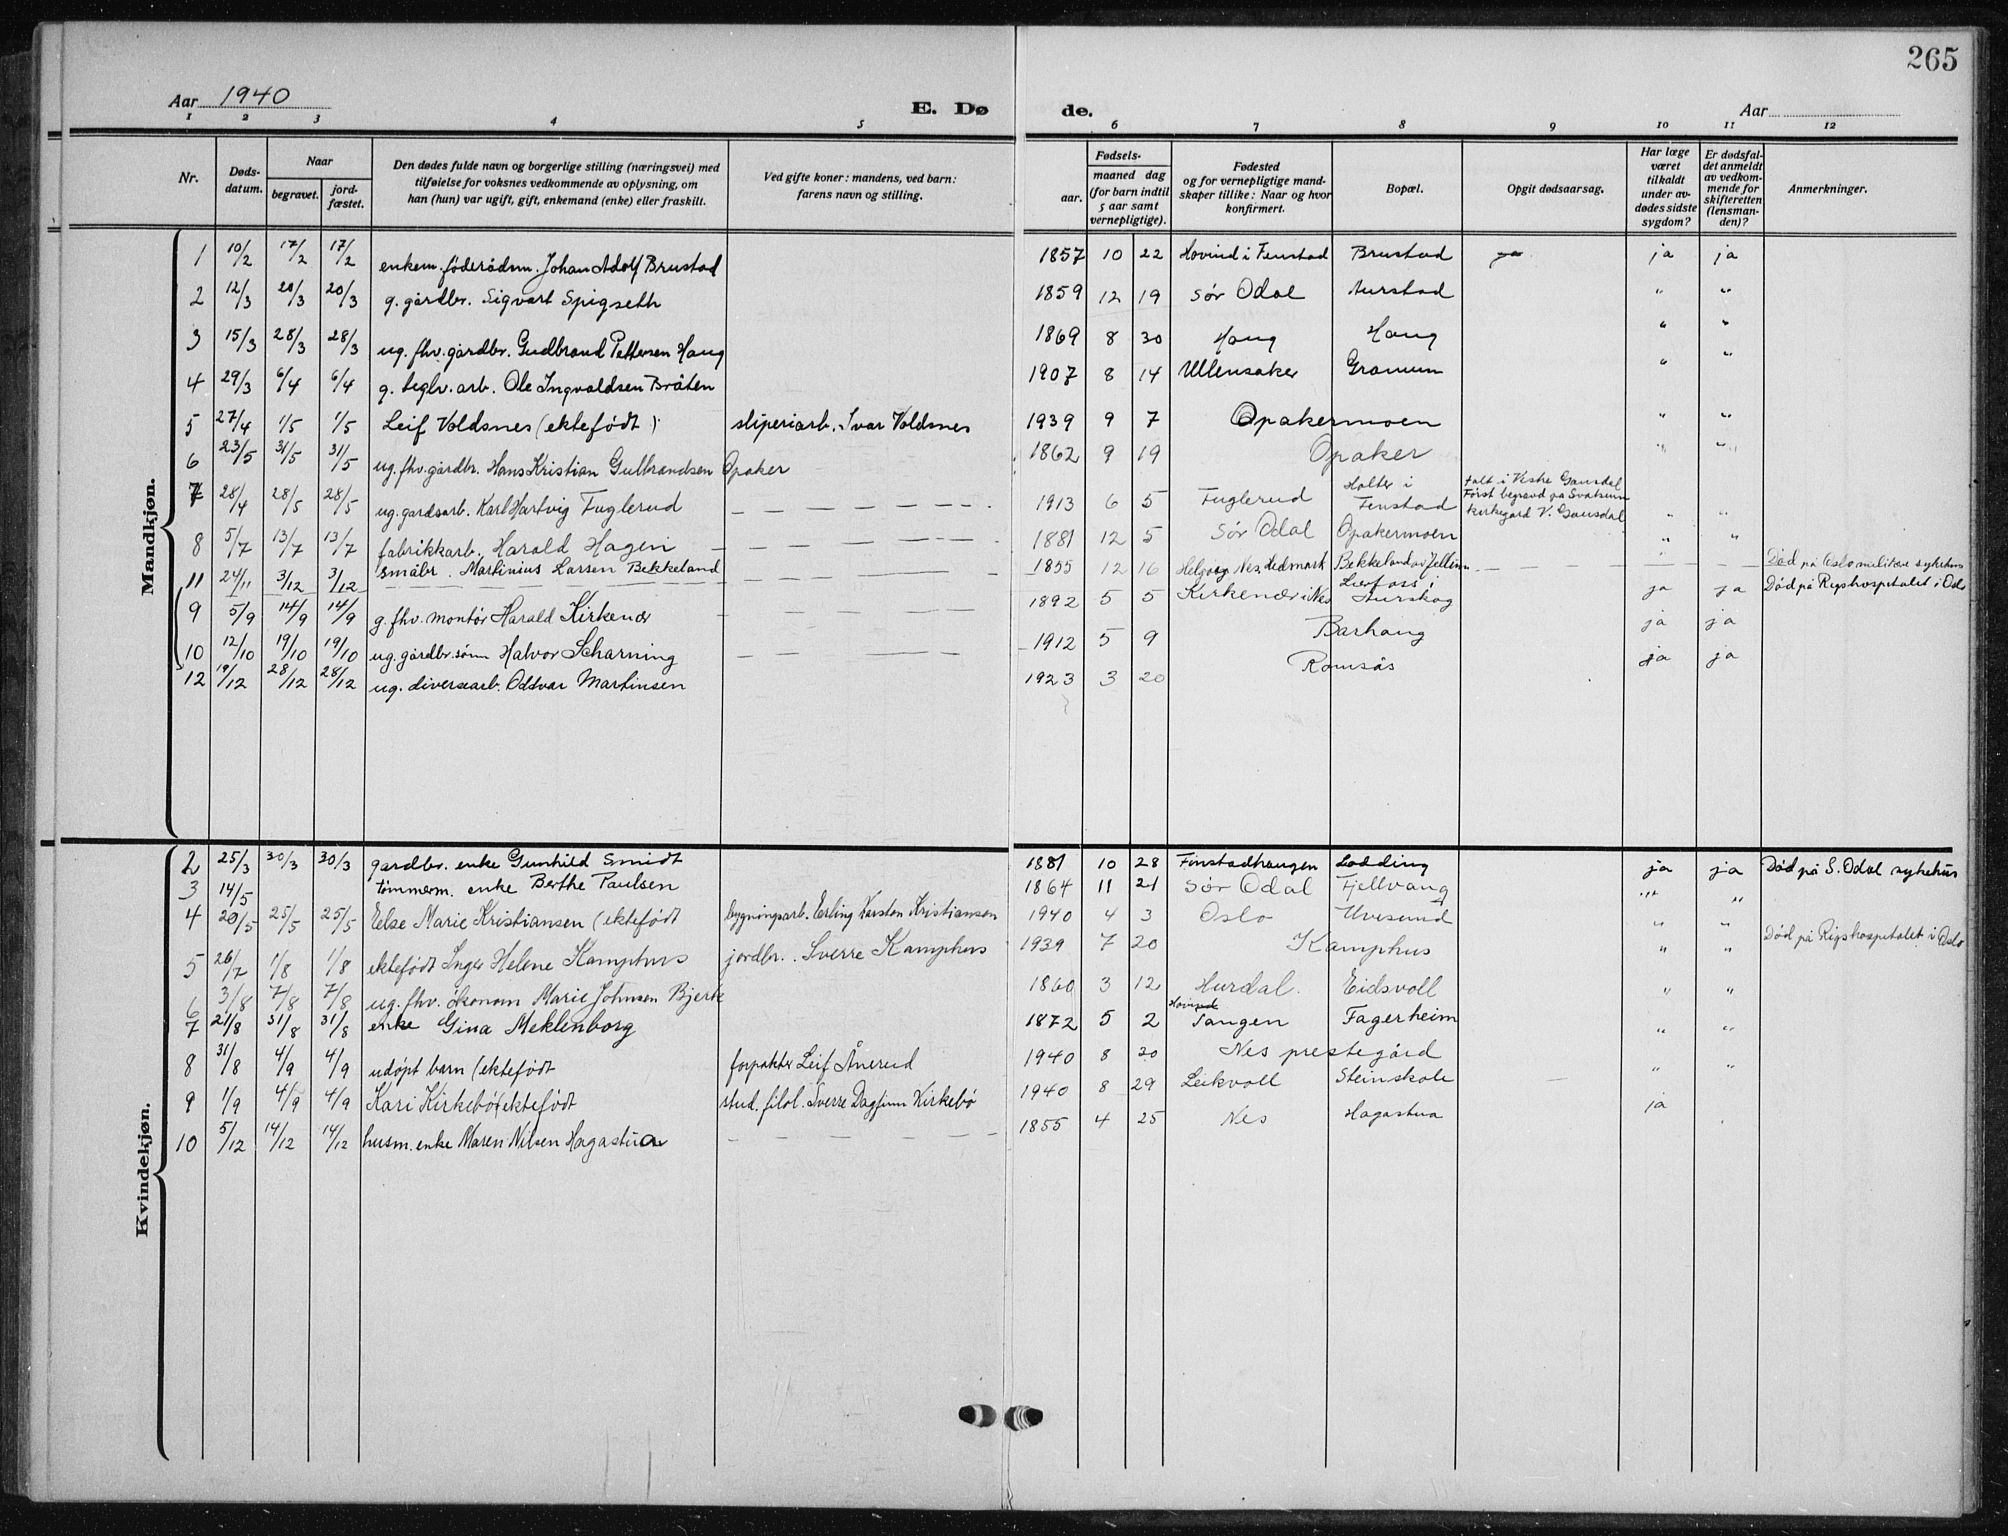 265
Aar 1940
E. Dø
de.
Aar
1 2 3 4 5 6 7 8 9 10 11 12
Nr.
Døds-
datum.
Naar
begravet.
jord-
fæstet.
Den dødes fulde navn og borgerlige stilling (næringsvei) med
tilføielse for voksnes vedkommende av oplysning, om
han (hun) var ugift, gift, enkemand (enke) eller fraskilt.
Ved gifte koner: mandens, ved barn:
farens navn og stilling.
Fødsels-
aar.
maaned dag
(for barn indtil
5 aar samt
vernepligtige).
Fødested
og for vernepligtige mand-
skaper tillike: Naar og hvor
konfirmert.
Bopæl.
Opgit dødsaarsag.
Har læge
været
tilkaldt
under av-
dødes sidste
sygdom?
Er dødsfal-
det anmeldt
av vedkom-
mende for
skifteretten
(lensman-
den)?
Anmerkninger.
Mandkjøn.
1 10/2 17/2 17/2 enkem. føderådsm. Johan Adolf Brustad 1857 10 22 Hovind i Fenstad Brustad ja ja ja
2 12/3 20/3 20/3 g. gårdbr. Sigvart Spigseth 1859 12 19 Sør Odal Aurstad " "
3 15/3 28/3 28/3 ug. fhv. gårdbr. Gudbrand Pettersen Haug 1869 8 30 Haug Haug " "
4 29/3 6/4 6/4 g. teglv. arb. Ole Ingvaldsen Bråten 1907 8 14 Ullensaker Gramum " "
5 27/4 1/5 1/5 Leif Voldsnes (ektefødt) sliperiarb. Ivar Voldsnes 1939 9 7 Opakermoen " "
6 23/5 31/5 31/5 ug. fhv. gårdbr. Hans Kristian Gulbrandsen Opaker 1862 9 19 Opaker " "
7 28/4 28/5 28/5 ug. gardsarb. Karl Hartvig Fuglerud 1913 6 5 Fuglerud Holter i Fenstad falt i Vestre Gausdal Først begravd på Svatsum kirkegård V. Gausdal " "
8 5/7 13/7 13/7 fabrikkarb. Harald Hagen 1881 12 5 Sør Odal Opakermoen " "
11 24/11 3/12 3/12 småbr. Martinius Larsen Bekkeland 1855 12 16 Helgøy Nes, Hedmark Bekkeland av " Død på Oslo militær sykehus
9 5/9 14/9 14/9 g. fhv. montør Harald Kirkenær 1892 5 5 Kirkenær i Nes Lierfoss i Aurskog ja ja Død på Rigshospitalet i Oslo
10 12/10 19/10 19/10 ug. gårdbr. sønn Halvor Scharning 1912 5 9 Barhaug ja ja
12 19/12 28/12 28/12 ug. diversearb. Oddvar Martinsen 1923 3 20 Romsås ja ja
Kvindekjøn.
2 25/3 30/3 30/3 gardbr. enke Gunhild Smidt 1881 10 28 Finstadhaugen Lodding ja ja Død på S. Odal sykehus
3 14/5 tømmerm. enke Berthe Paulsen 1864 11 21 Sør Odal Fjellvang " "
4 20/5 25/5 25/5 Else Marie Kristiansen (ektefødt bygningsarb. Erling Karsten Kristiansen 1940 4 3 Oslo Uvesund " "
5 26/7 1/8 1/8 ektefødt Inger Helene Kamphus jordbr. Sverre Kamphus 1939 7 20 Kamphus " " Død på Rigshospitalet i Oslo
6 3/8 7/8 7/8 ug. fhv. økonom Marie Johnsen Bjerk 1860 3 12 Hurdal. Eidsvoll " "
7 21/8 31/8 31/8 enke Gina Meklenborg 1872 5 2 Hovind Tangen Fagerheim " "
8 31/8 4/9 4/9 udøpt barn (ektefødt forpakter Leif Ånerud 1940 8 20 Nes prestegård " "
9 1/9 4/9 4/9 Kari Kirkebø (ektefødt stud. filol. Sverre Dagfinn Kirkebø 1940 8 29 Leikvoll Steinskole ja
10 5/12 14/12 14/12 husm. enke Maren Nilsen Hagastua 1855 4 25 Nes Hagastua